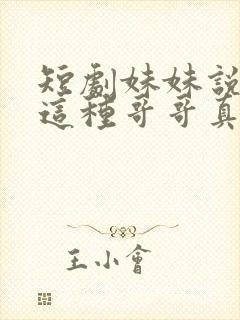 短劇妹妹說
這種哥哥真
王小會